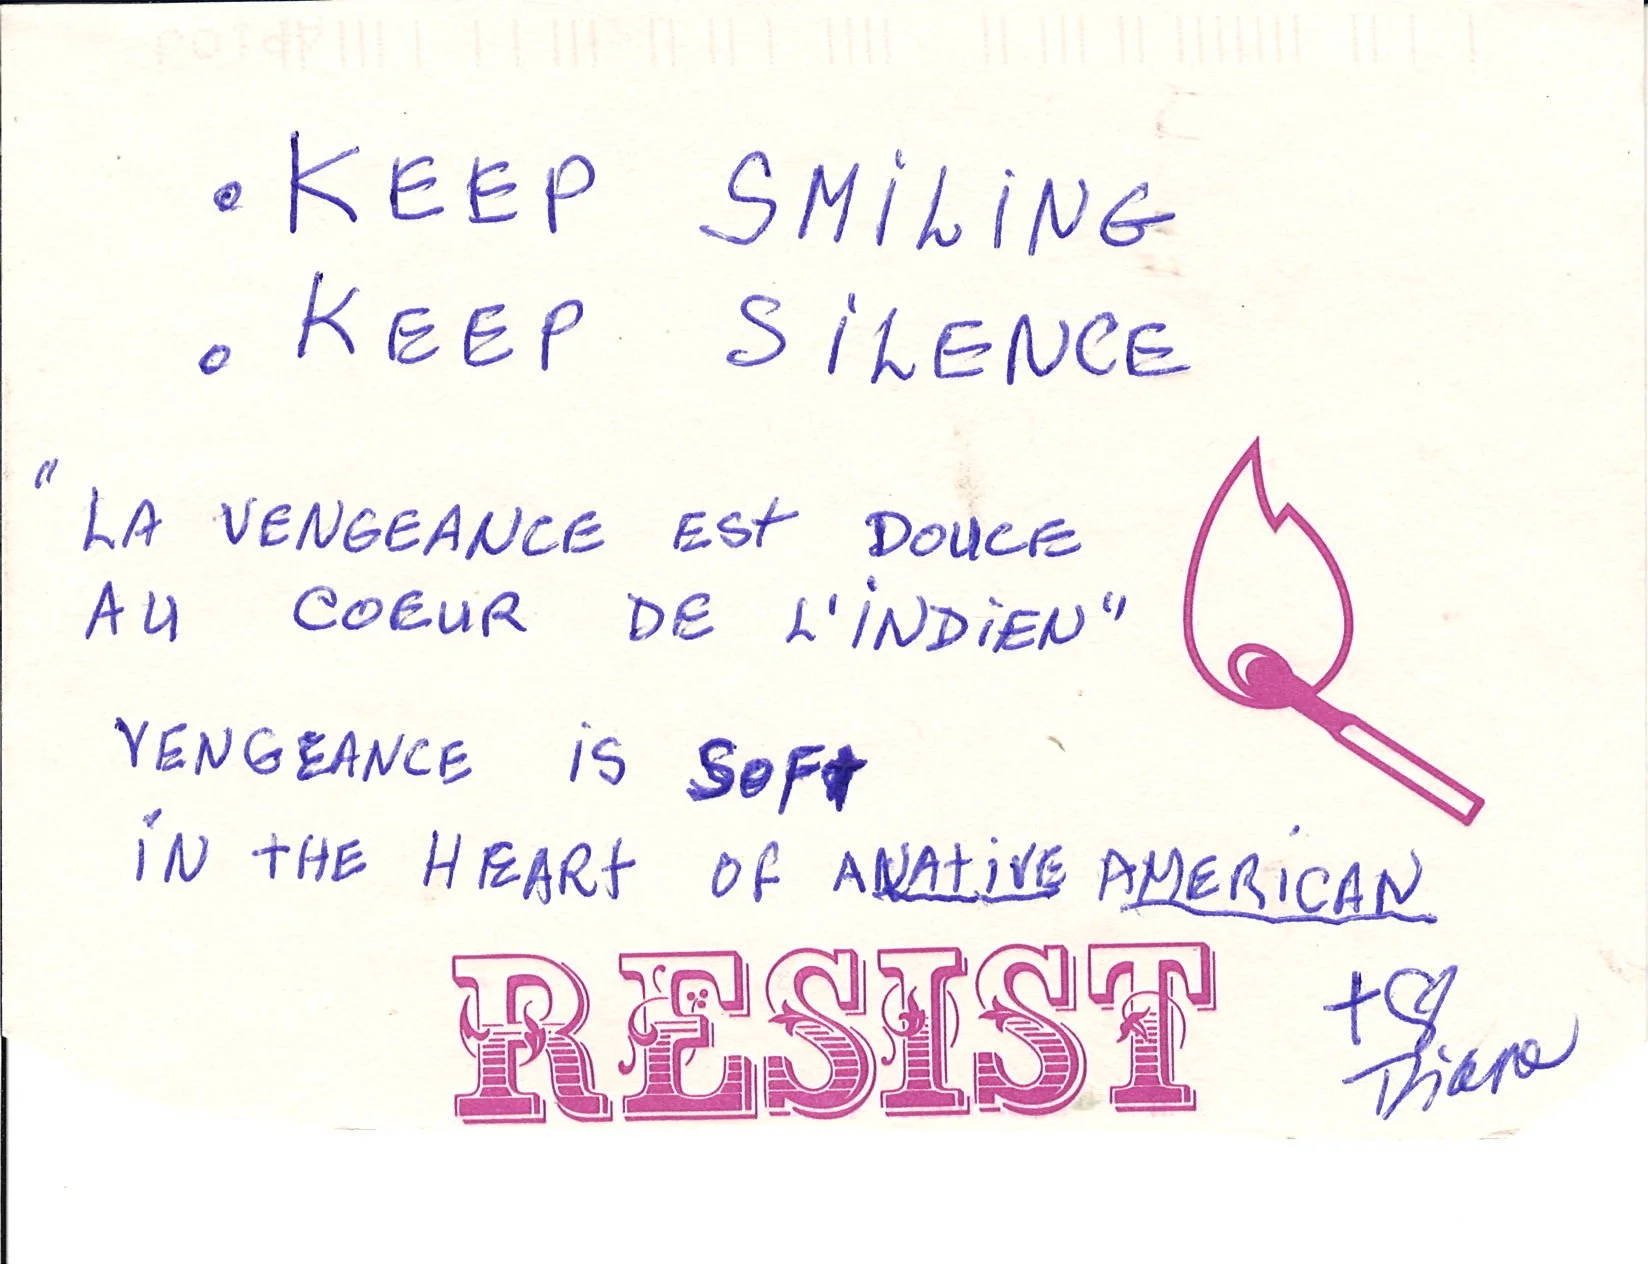 • KEEP SMiLiNG
• KEEP SiLENCE
"LA VENGEANCE ESt DOUCE
AU COEUR DE L'iNDiEN"
VENGEANCE iS SOFt
iN tHE HEARt OF A NAtiVE AMERiCAN
RESIST
+♡
Diana